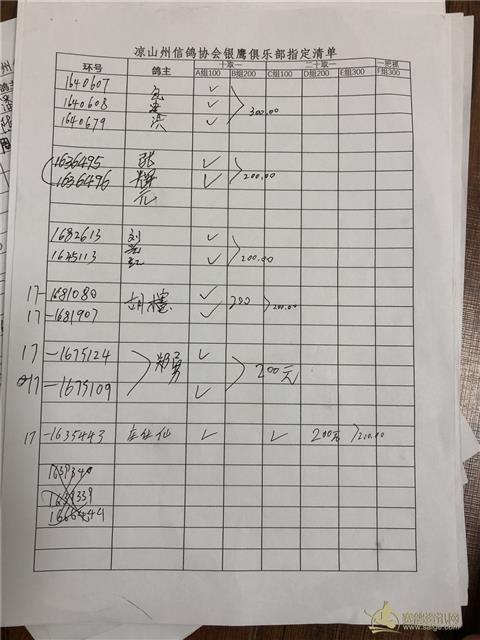 凉山州信鸽协会银鹰俱乐部指定清单
环号 鸽主 十取一 二十取一 一把抓
A组100 B组200 C组100 D组200 E组300 F组300
1640607 ✓
1640608 ✓ 300.00
1640679 洪 ✓
1636495 张 ✓
1636496 辉 ✓ 200.00
元
1682613 刘 ✓
1645113 红 200.00
17-1681080 胡 ✓ 200 200.00
17-1681907 ✓
17-1675124 郑勇 ✓ 200元
17-1675109 ✓
17-1635443 仙 ✓ ✓ 200元 200.00
1639340
1639339
1666444
赛鸽资讯网
www.saige.com